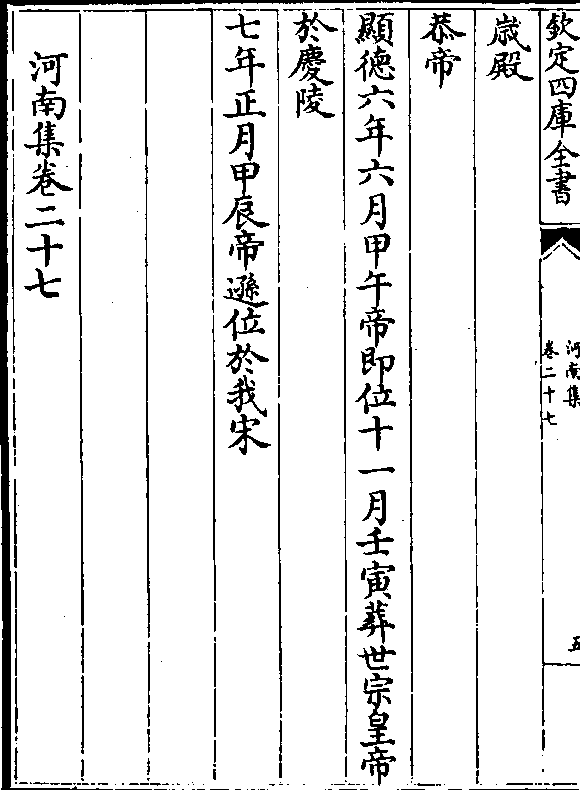 欽定四庫全書
河南集
卷二十七
五
歳殿
恭帝
顯德六年六月甲午帝即位十一月壬寅葬世宗皇帝
於慶陵
七年正月甲辰帝遜位於我宋
河南集卷二十七